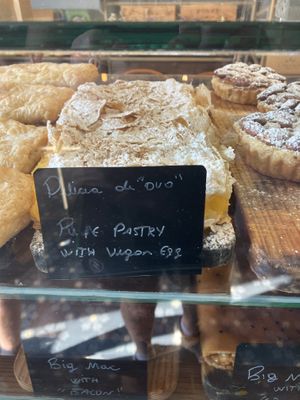 Delicia de "ovo"
Puffe Pastry
with vegan egg
Big Mac
with
"Bacon"
Big Ma